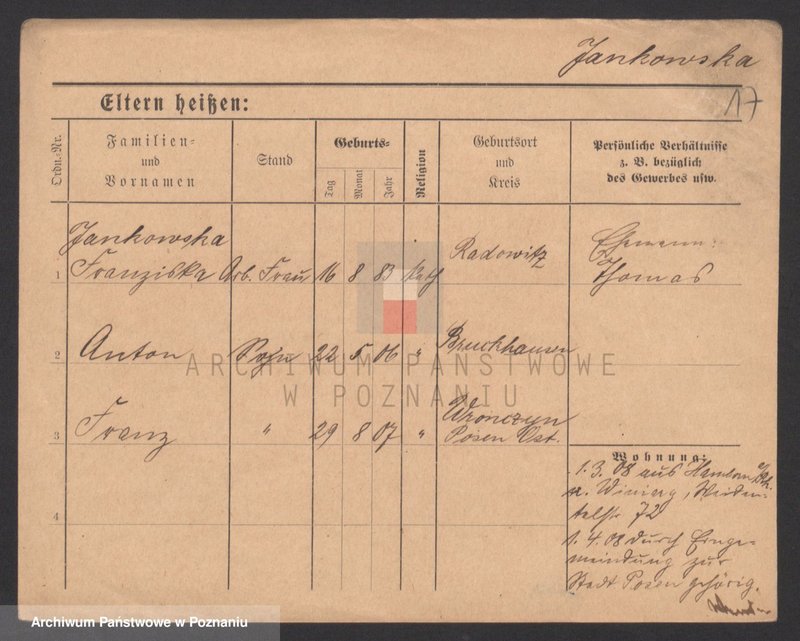 Jankowska
17
Eltern heißen:
Ordn.-Nr.
Familien-
und
Vornamen
Stand
Geburts-
Tag
Monat
Jahr
Religion
Geburtsort
und
Kreis
Persönliche Verhältnisse
z. B. bezüglich
des Gewerbes usw.
Jankowska
1 Franziska Arb. Frau 16 8 83 kath Radowitz
Ehemann:
Thomas
2 Anton Sohn 22 5 06 " Bruckhausen
ARCHIWUM PAŃSTWOWE
W POZNANIU
Wronczyn
3 Franz " 29 8 07 " Posen Ost.
Wohnung:
1.3.08 aus Hamborn
n. Winiary, Weiden-
talstr 72
4
1.4.08 durch Einge-
meindung zur
Stadt Posen gehörig.
Archiwum Państwowe w Poznaniu